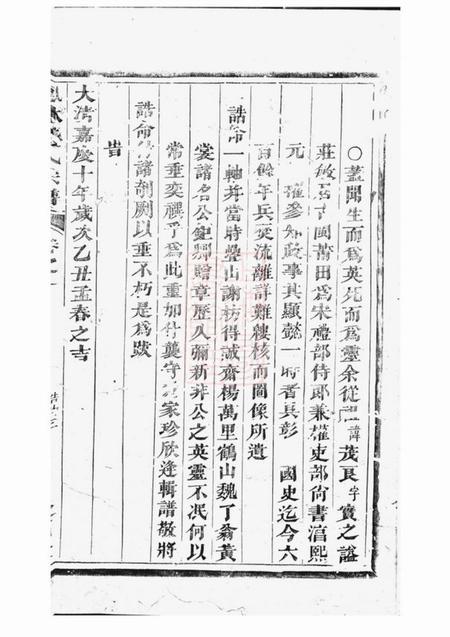 ○蓋聞生而為英死而為靈余從祖諱茂良字實之諡
莊敏居古闽莆田為宋禮部侍郎兼權吏部尚書淳熙
元 權參知政事其顯懿一時者具彰 國史迄今六
百餘年兵燹流離詳難縷核而圖像所遺
誥命一軸并當時疊山謝枋得誠齋楊萬里鶴山魏了翁黃
裳諸名公鉅卿贈章歷久彌新非公之英靈不泯何以
常垂奕禩乎為此重加什襲守 家珍欣逢輯譜敬將
誥命 諸剞劂以垂不朽是為跋
旹
大清嘉慶十年歲次乙丑孟春之吉